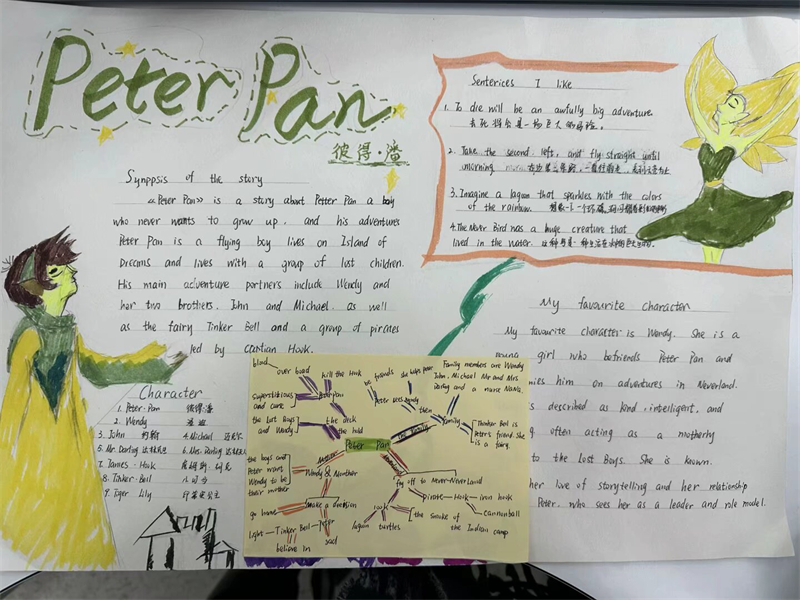 Peter Pan
彼得·潘
Synppsis of the story
《Peter Pan》 is a story about Peter Pan a boy
who never wants to grow up, and his adventures
Peter Pan is a flying boy lives on Island of
Dreams and lives with a group of lost children.
His main adventure partners include Wendy and
her two brothers, John and Michael, as well
as the fairy Tinker Bell and a group of pircates
led by Captian Hook.
Character
1. Peter·Pan 彼得·潘
2. Wendy 温迪
3. John 约翰 4. Michael 迈克尔
5. Mr. Darling 达林先生 6. Mrs. Darling
7. James·Hook 詹姆斯·胡克
8. Tinker·Bell 小叮当
9. Tiger Lily 印第安公主
Sentences I like
1. To die will be an awfully big adventure.
去死将会是一场巨大的冒险。
2. Take the second left, and fly straight until
morning.
3. Imagine a lagoon that sparkles with the colors
of the rainbow.
4. The Never Bird was a huge creature that
lived in the water.
My favourite character
My favourite character is Wendy. She is a
young girl who befriends Peter Pan and
him on adventures in Neverland.
described as kind, intelligent, and
often acting as a motherly
to the Lost Boys. She is known
her live of storytelling and her relationship
Peter, who sees her as a leader and role model.
blood over board kill the Hook
Superstitious and cure
Peter pan
the lost Boys and Wendy
the deck
the hold
be friends she helps Peter
Peter meets Wendy
then
Family members are Wendy
John, Michael Mr and Mrs
Darling and a nurse NaNa.
family
Tinker Bell is
Peter's friend. She
is a fairy.
Peter Pan
the boys and
Peter want
Wendy to be
their mother
Wendy & Mother
go home
make a decision
light Tinker Bell
sad
believe in
fly off to Never-Neverland
pirate Hook iron hook
cannonball
look
lagoon turtles
the smoke of
the Indian camp